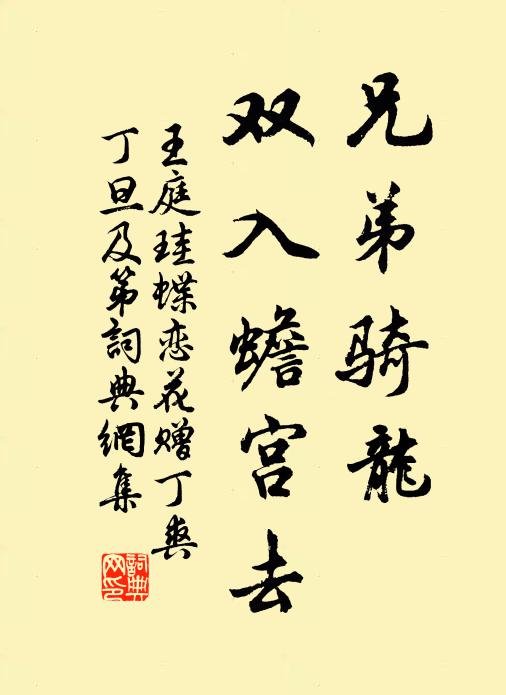 兄弟骑龙
双入蟾宫去
王庭珪蝶恋花赠丁爽
丁旦及第詞典網集
詞典
网印